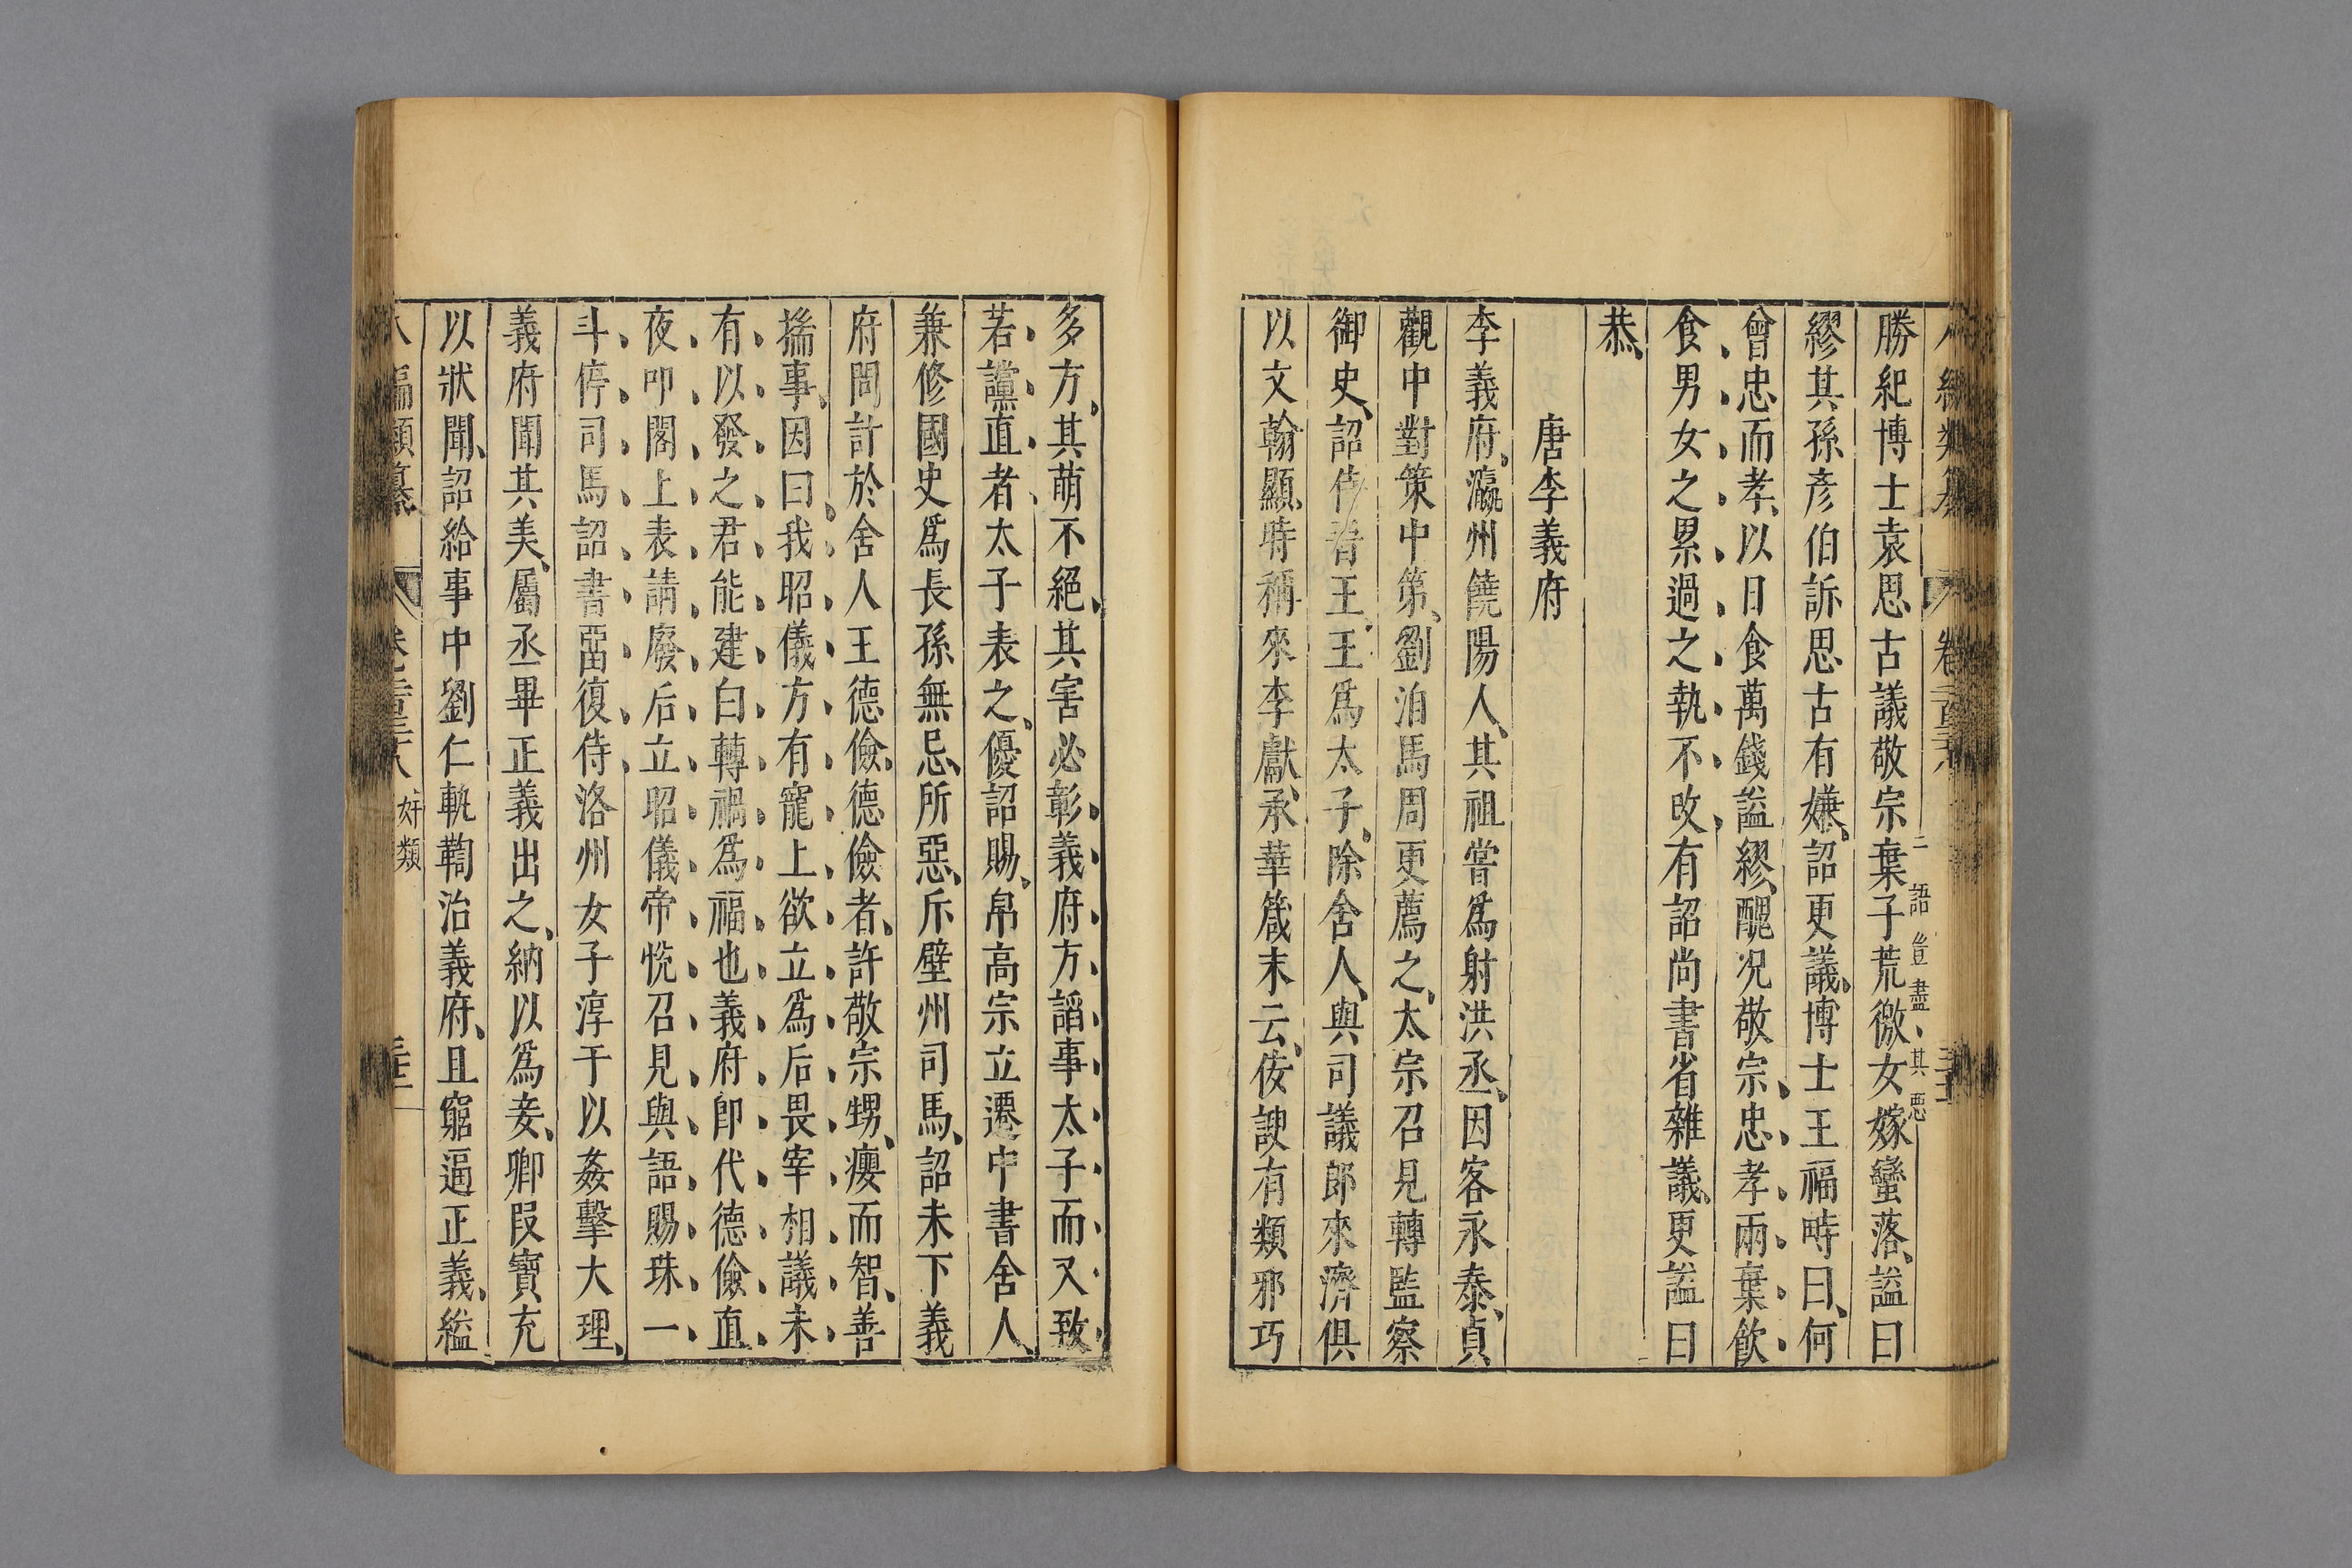 勝紀博士袁思古議敬宗棄子荒徼女嫁蠻落謚曰
二語豈盡其惡
繆其孫彥伯訴思古有嫌詔更議博士王福畤曰何
曾忠而孝以日食萬錢謚繆醜况敬宗忠孝兩棄飲
食男女之累過之執不改有詔尚書省雜議更謚曰
恭
唐李義府
李義府瀛州饒陽人其祖嘗爲射洪丞因客永泰貞
觀中對策中第劉洎馬周更薦之太宗召見轉監察
御史詔侍晉王王爲太子除舍人與司議郎來濟俱
以文翰顯時稱來李獻承華箴末云佞諛有類邪巧
多方其萌不絕其害必彰義府方諂事太子而又致
若讜直者太子表之優詔賜帛高宗立遷中書舍人
兼修國史爲長孫無忌所惡斥壁州司馬詔未下義
府問計於舍人王德儉德儉者許敬宗甥癭而智善
揣事因曰我昭儀方有寵上欲立爲后畏宰相議未
有以發之君能建白轉禍爲福也義府卽代德儉直
夜叩閣上表請廢后立昭儀帝悦召見與語賜珠一
斗停司馬詔書畱復侍洛州女子淳于以姦擊大理
義府聞其美屬丞畢正義出之納以爲妾卿段寶充
以狀聞詔給事中劉仁軌鞫治義府且窮逼正義縊
八編類纂
奸類